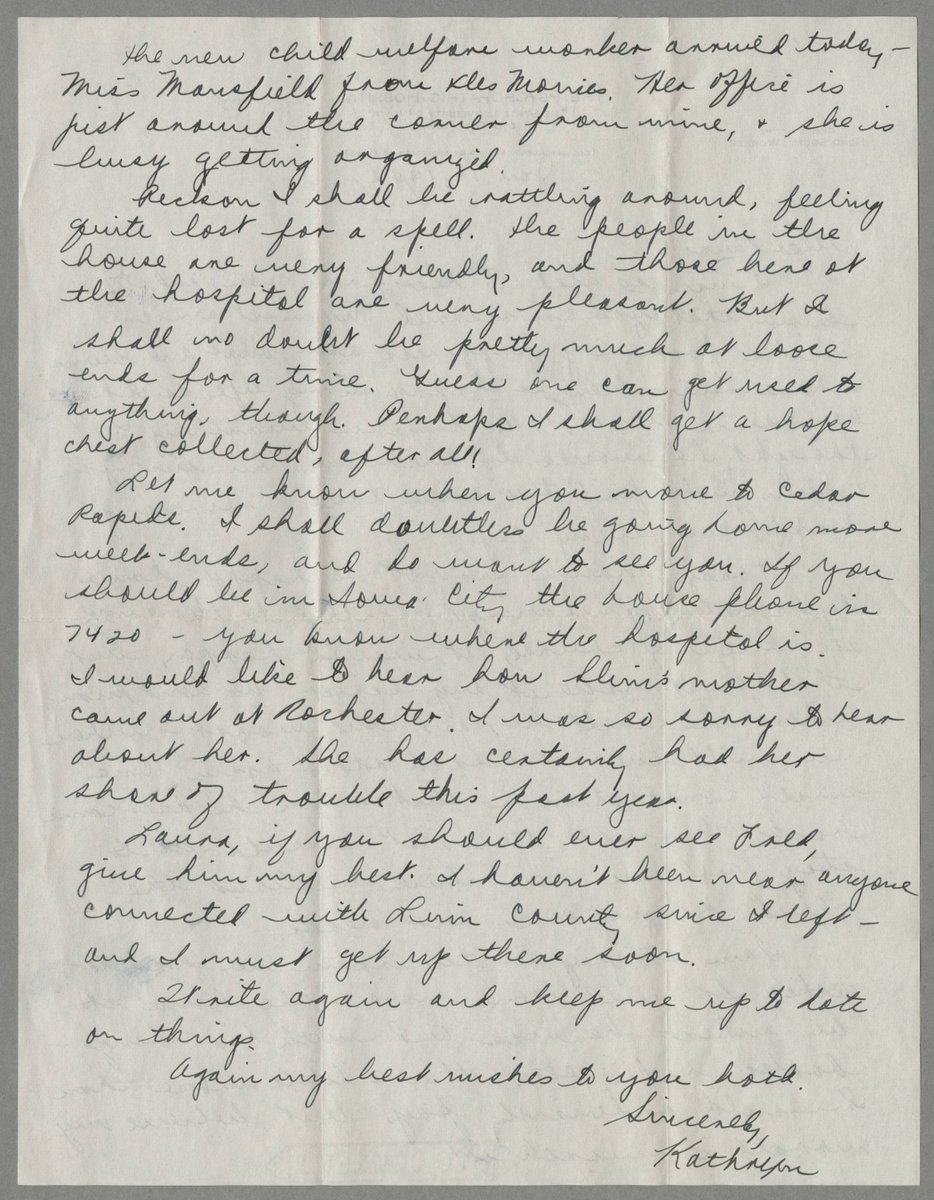 The new child welfare worker arrived today –
Miss Mansfield from Des Moines. Her office is
just around the corner from mine, & she is
busy getting organized.
Reckon I shall be rattling around, feeling
quite lost for a spell. The people in the
house are very friendly, and those here at
the hospital are very pleasant. But I
shall no doubt be pretty much at loose
ends for a time. Guess one can get used to
anything, though. Perhaps I shall get a hope
chest collected, after all!
Let me know when you move to Cedar
Rapids. I shall doubtless be going home more
week-ends, and do want to see you. If you
should be in Iowa City the house phone is
7420 – you know where the hospital is.
I would like to hear how Slim's mother
came out at Rochester. I was so sorry to hear
about her. She has certainly had her
share of trouble this past year.
Laura, if you should ever see Fred,
give him my best. I haven't been near anyone
connected with Linn County since I left –
and I must get up there soon.
Write again and keep me up to date
on things.
Again my best wishes to you both.
Sincerely,
Kathryn